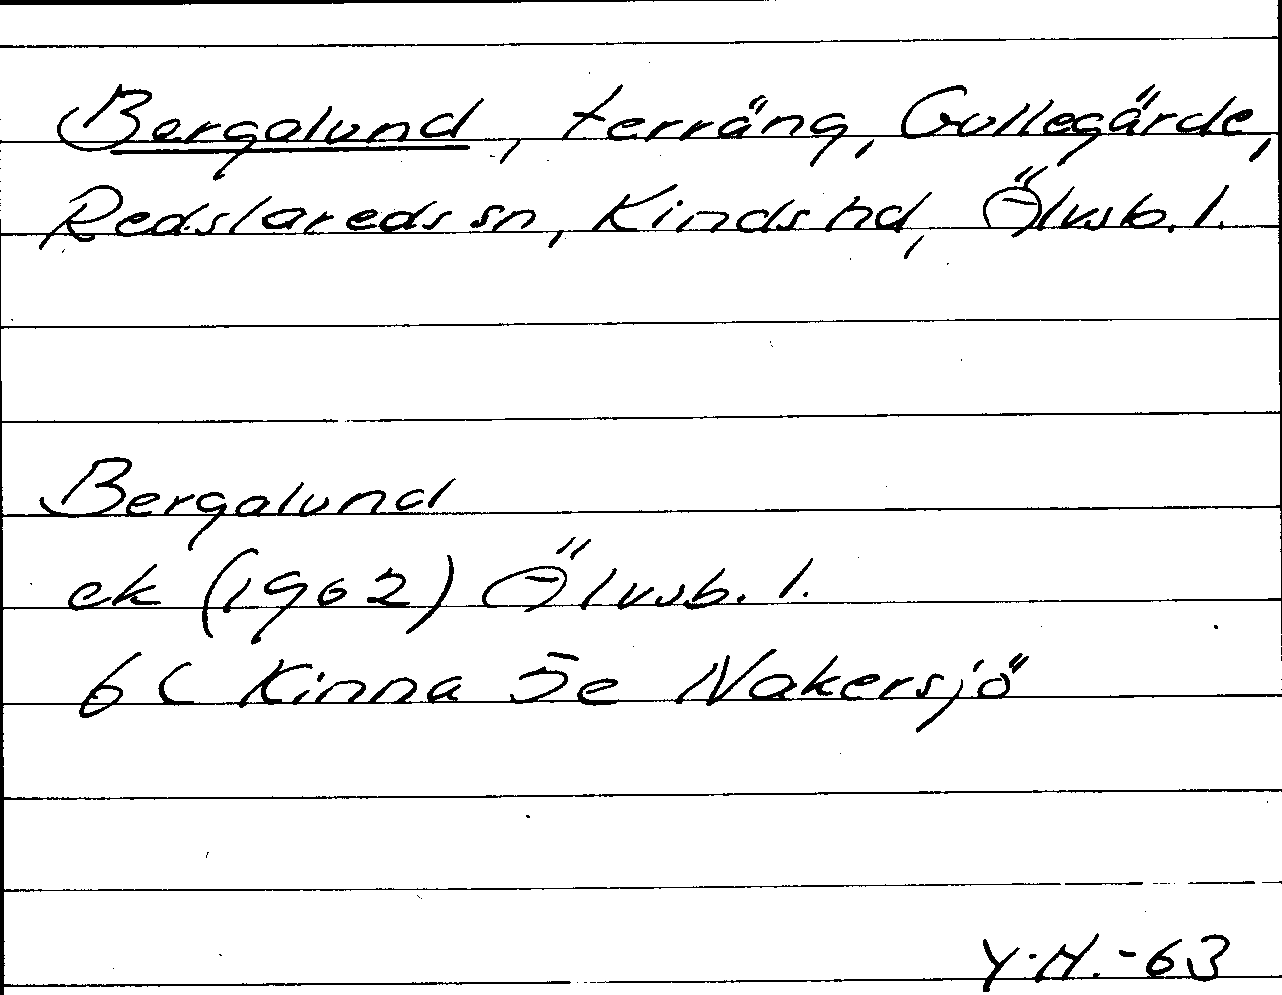 Bergalund, terräng, Gullegärde,
Redslareds sn, Kinds hd, Älvsb. l.
Bergalund
ek (1962) Älvsb. l.
6 C Kinna 5e Nakersjö
Y.H.-63